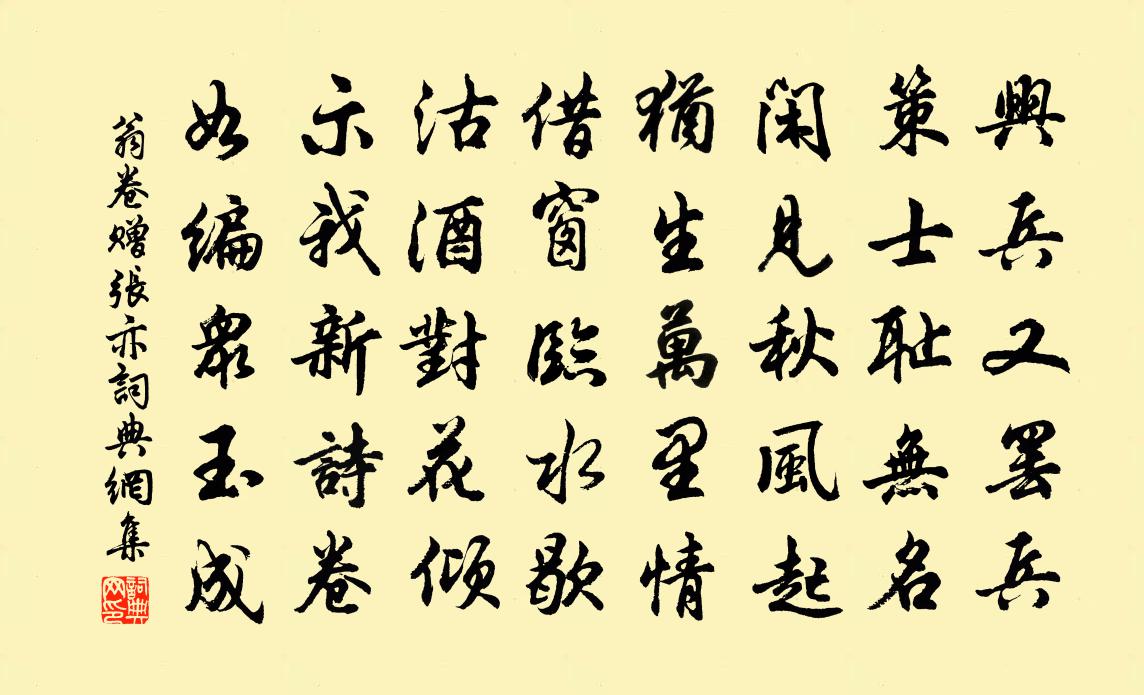 興兵又罢兵
策士耻無名
闲見秋風起
猶生萬里情
借窗臨水歇
沽酒對花傾
示我新詩卷
如編眾玉成
翁卷赠張亦詞典網集
詞典网印